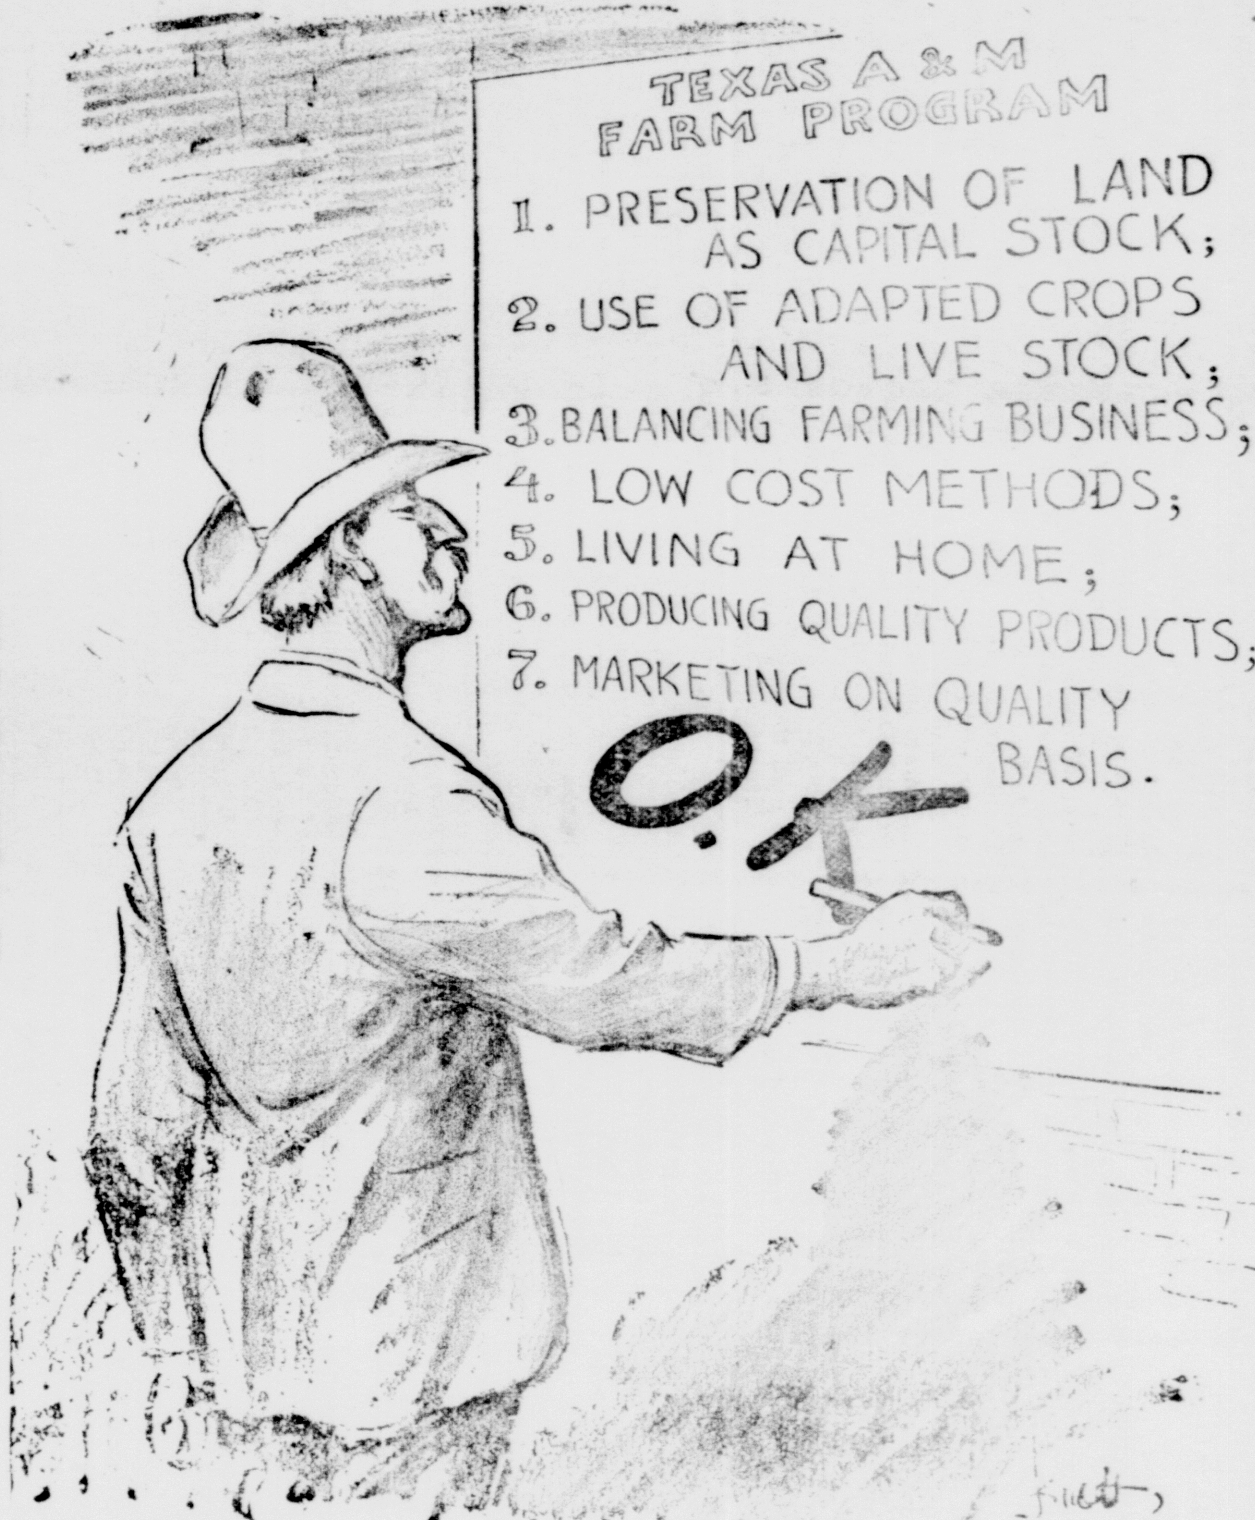 TEXAS A & M
FARM PROGRAM
1. PRESERVATION OF LAND
AS CAPITAL STOCK;
2. USE OF ADAPTED CROPS
AND LIVE STOCK;
3. BALANCING FARMING BUSINESS;
4. LOW COST METHODS;
5. LIVING AT HOME;
6. PRODUCING QUALITY PRODUCTS;
7. MARKETING ON QUALITY
BASIS.
O.K